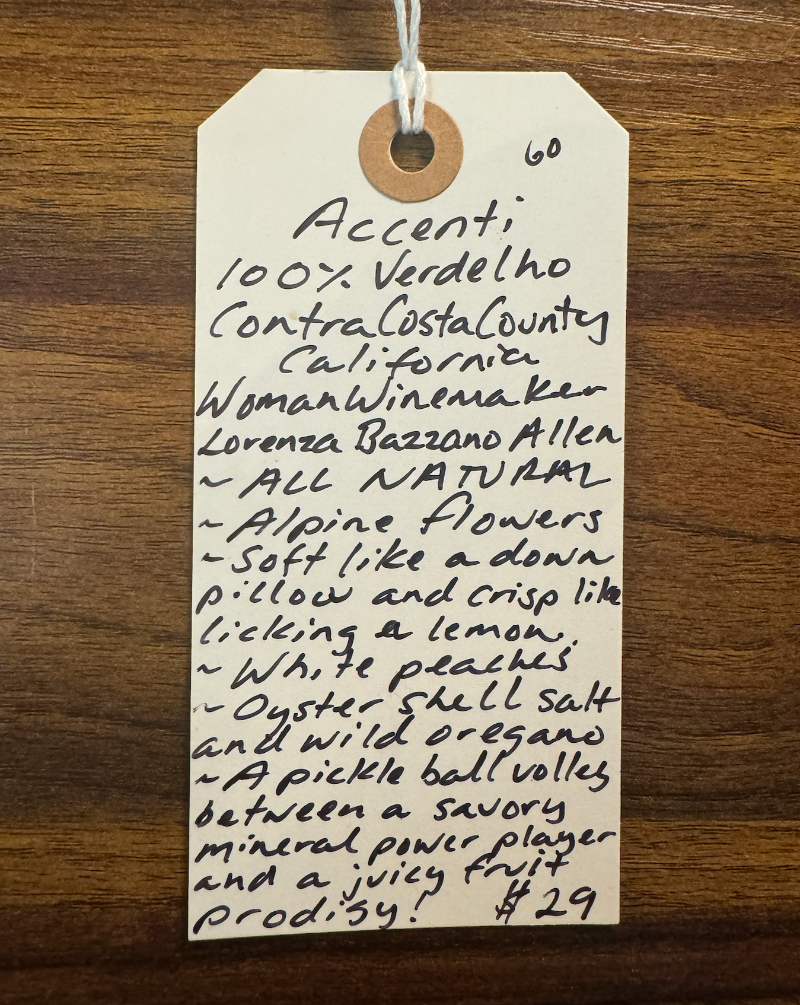 60
Accenti
100% Verdelho
Contra Costa County
California
Woman Winemaker
Lorenza Bazzano Allen
~ ALL NATURAL
~ Alpine flowers
~ Soft like a down
pillow and crisp like
licking a lemon.
~ White peaches
~ Oyster shell salt
and wild oregano
~ A pickle ball volley
between a savory
mineral power player
and a juicy fruit
prodigy! $29